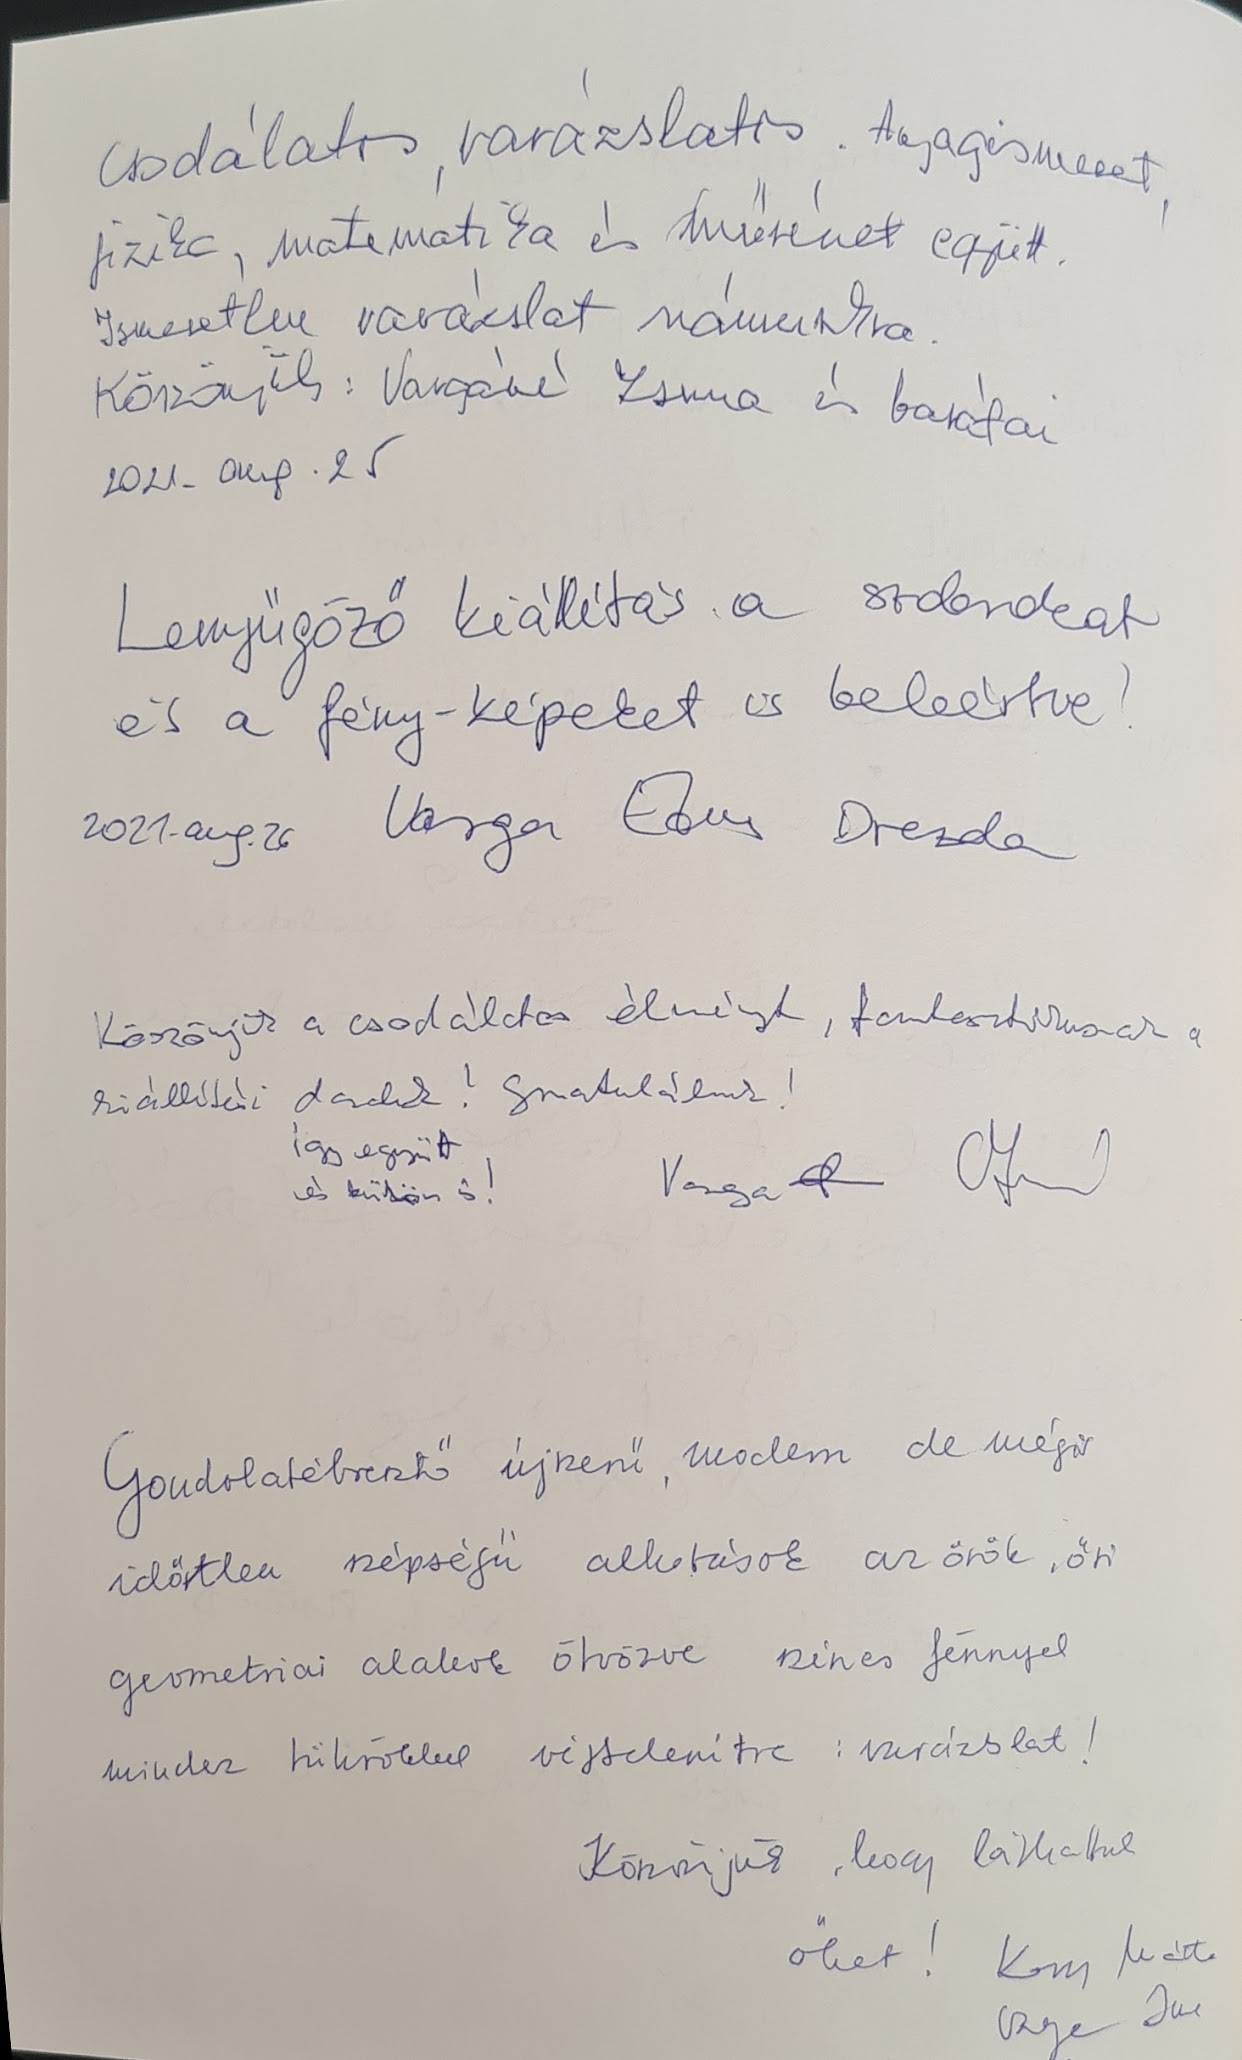 Csodálatos, varázslatos. Anyagismeret,
fizika, matematika és művészet együtt.
Ismeretlen varázslat számunkra.
Köszönjük: Vargáné Zsuzsa és barátai
2021. aug. 25
Lenyűgöző kiállítás a szobrokat
és a fény-képeket is beleértve!
2021. aug. 26 Varga Drezda
Köszönjük a csodálatos élményt, fantasztikusak a
kiállítási darabok! Gratulálunk!
így együtt
és külön is!
Varga
Gondolatébresztő újszerű, modern de mégis
időtlen szépségű alkotások az örök, ősi
geometriai alakok ötvözve színes fénnyel
mindez tükrökkel : varázslat!
Köszönjük, hogy láthattuk
őket!